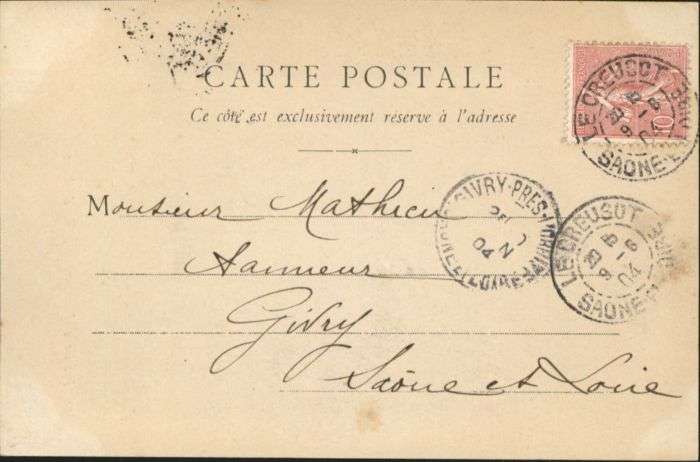 CARTE POSTALE
Ce côté est exclusivement réservé à l'adresse
10
LE CREUSOT
SAONE-
Monsieur Mathieu
GIVRY-PRES-L'
SAONE-ET-LOIRE
04
LE CREUSOT
04
SAONE-
Tanneur
Givry
Saône et Loire